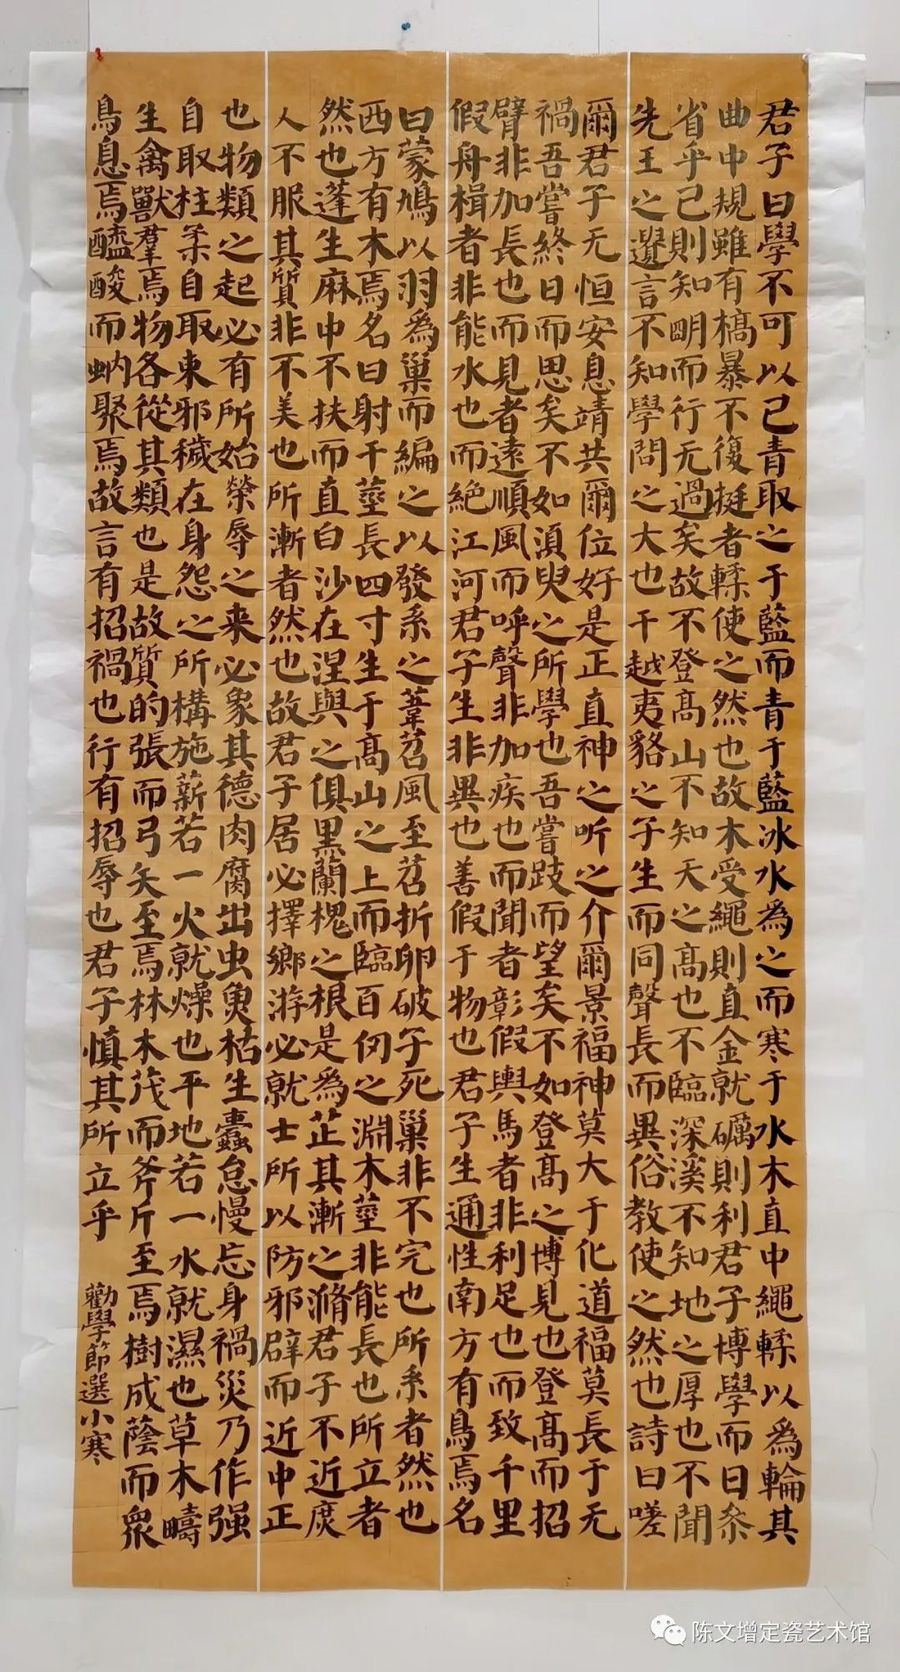 君子曰學不可以已青取之于藍而青于藍冰水為之而寒于水木直中繩輮以為輪其
曲中規雖有槁暴不復挺者輮使之然也故木受繩則直金就礪則利君子博學而日參
省乎己則知明而行无過矣故不登高山不知天之高也不臨深溪不知地之厚也不聞
先王之遺言不知學問之大也干越夷貉之子生而同聲長而異俗教使之然也詩曰嗟
爾君子无恒安息靖共爾位好是正直神之听之介爾景福神莫大于化道福莫長于无
禍吾嘗終日而思矣不如須臾之所學也吾嘗跂而望矣不如登高之博見也登高而招
臂非加長也而見者遠順風而呼聲非加疾也而聞者彰假輿馬者非利足也而致千里
假舟楫者非能水也而絕江河君子生非異也善假于物也君子生通性南方有鳥焉名
曰蒙鳩以羽為巢而編之以發系之葦苕風至苕折卵破子死巢非不完也所系者然也
西方有木焉名曰射干莖長四寸生于高山之上而臨百仞之淵木莖非能長也所立者
然也蓬生麻中不扶而直白沙在涅與之俱黑蘭槐之根是為芷其漸之滫君子不近庶
人不服其質非不美也所漸者然也故君子居必擇鄉游必就士所以防邪辟而近中正
也物類之起必有所始榮辱之來必象其德肉腐出虫魚枯生蠹怠慢忘身禍災乃作强
自取柱柔自取束邪穢在身怨之所構施薪若一火就燥也平地若一水就濕也草木疇
生禽獸羣焉物各從其類也是故質的張而弓矢至焉林木茂而斧斤至焉樹成蔭而衆
鳥息焉醯酸而蚋聚焉故言有招禍也行有招辱也君子慎其所立乎
勸學節選小寒
陈文增定瓷艺术馆